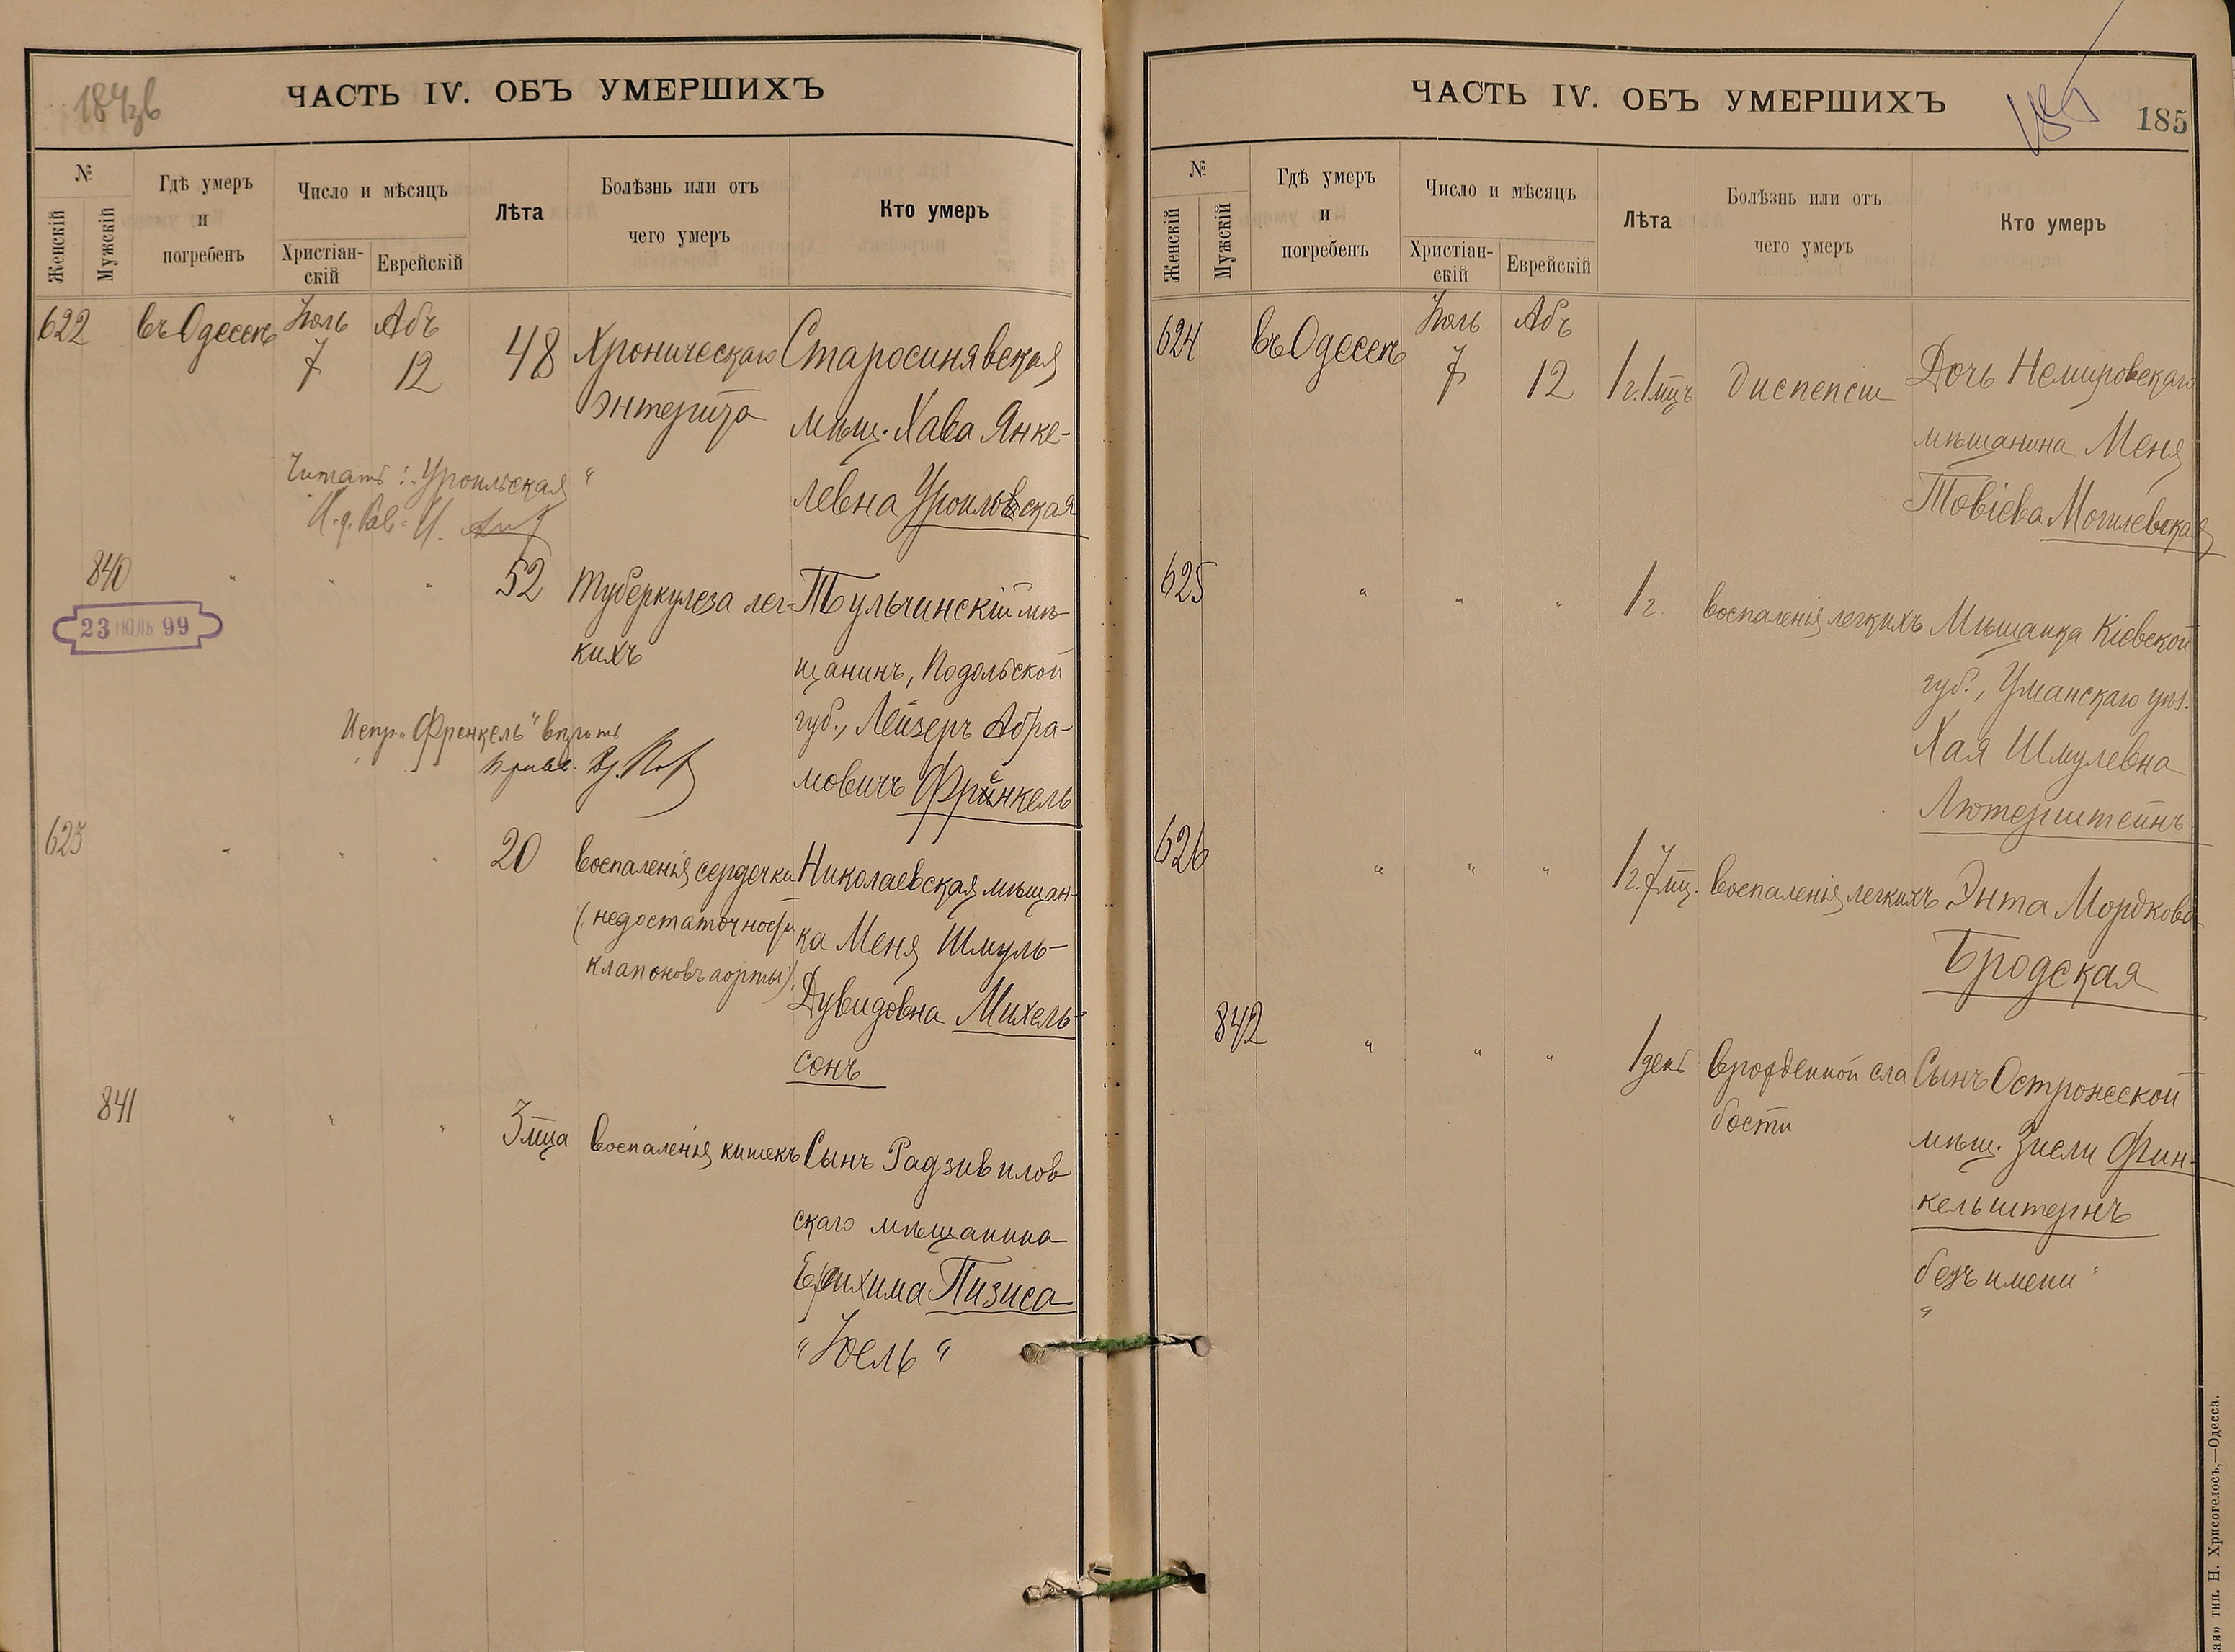 184об
ЧАСТЬ IV. ОБЪ УМЕРШИХЪ
№
Женскій
Мужскій
Гдѣ умеръ
и
погребенъ
Число и мѣсяцъ
Христіан-
скій
Еврейскій
Лѣта
Болѣзнь или отъ
чего умеръ
Кто умеръ
622 въ Одессѣ Іюль 7 Абъ 12 48
Хроническаго
энтерита
Старосинявская
мѣщ. Хава Янке-
левна Уроиловская
Читать: "Уроильская"
И. д. Рав.
840 " " " 52
Туберкулеза лег-
кихъ
Тульчинскій мѣ-
щанинъ, Подольской
губ., Лейзеръ Абра-
мовичъ Френкель
23 ІЮЛЬ 99
Испр. "Френкель" вѣрить
623 " " " 20
воспаленія сердечки
(недостаточности
клапоновъ аорты).
Николаевская мѣщан-
ка Меня Шмуль-
Дувидовна Михель-
сонъ
841 " " " 3 мца
воспаленія кишекъ
Сынъ Радзивилов
скаго мѣщанина
Ерихима Пизиса
"Іоель"
ЧАСТЬ IV. ОБЪ УМЕРШИХЪ
185
185
№
Женскій
Мужскій
Гдѣ умеръ
и
погребенъ
Число и мѣсяцъ
Христіан-
скій
Еврейскій
Лѣта
Болѣзнь или отъ
чего умеръ
Кто умеръ
624 въ Одессѣ Іюль 7 Абъ 12 1 г. 1 мцъ
диспепсіи
Дочь Немировскаго
мѣщанина Меня
Товіева Могилевская
625 " " " 1 г.
воспаленія легкихъ
Мѣщанка Кіевской
губ., Уманскаго уѣз.
Хая Шмулевна
Лютерштейнъ
626 " " " 1 г. 7 мц.
воспаленія легкихъ
Энта Мордкова
Бродская
842 " " " 1 день
врожденной сла
бости
Сынъ Острожской
мѣщ. Зисли Фин-
кельштернъ
безъ имени "
"
ая» тип. Н. Хрисогелосъ,—Одесса.